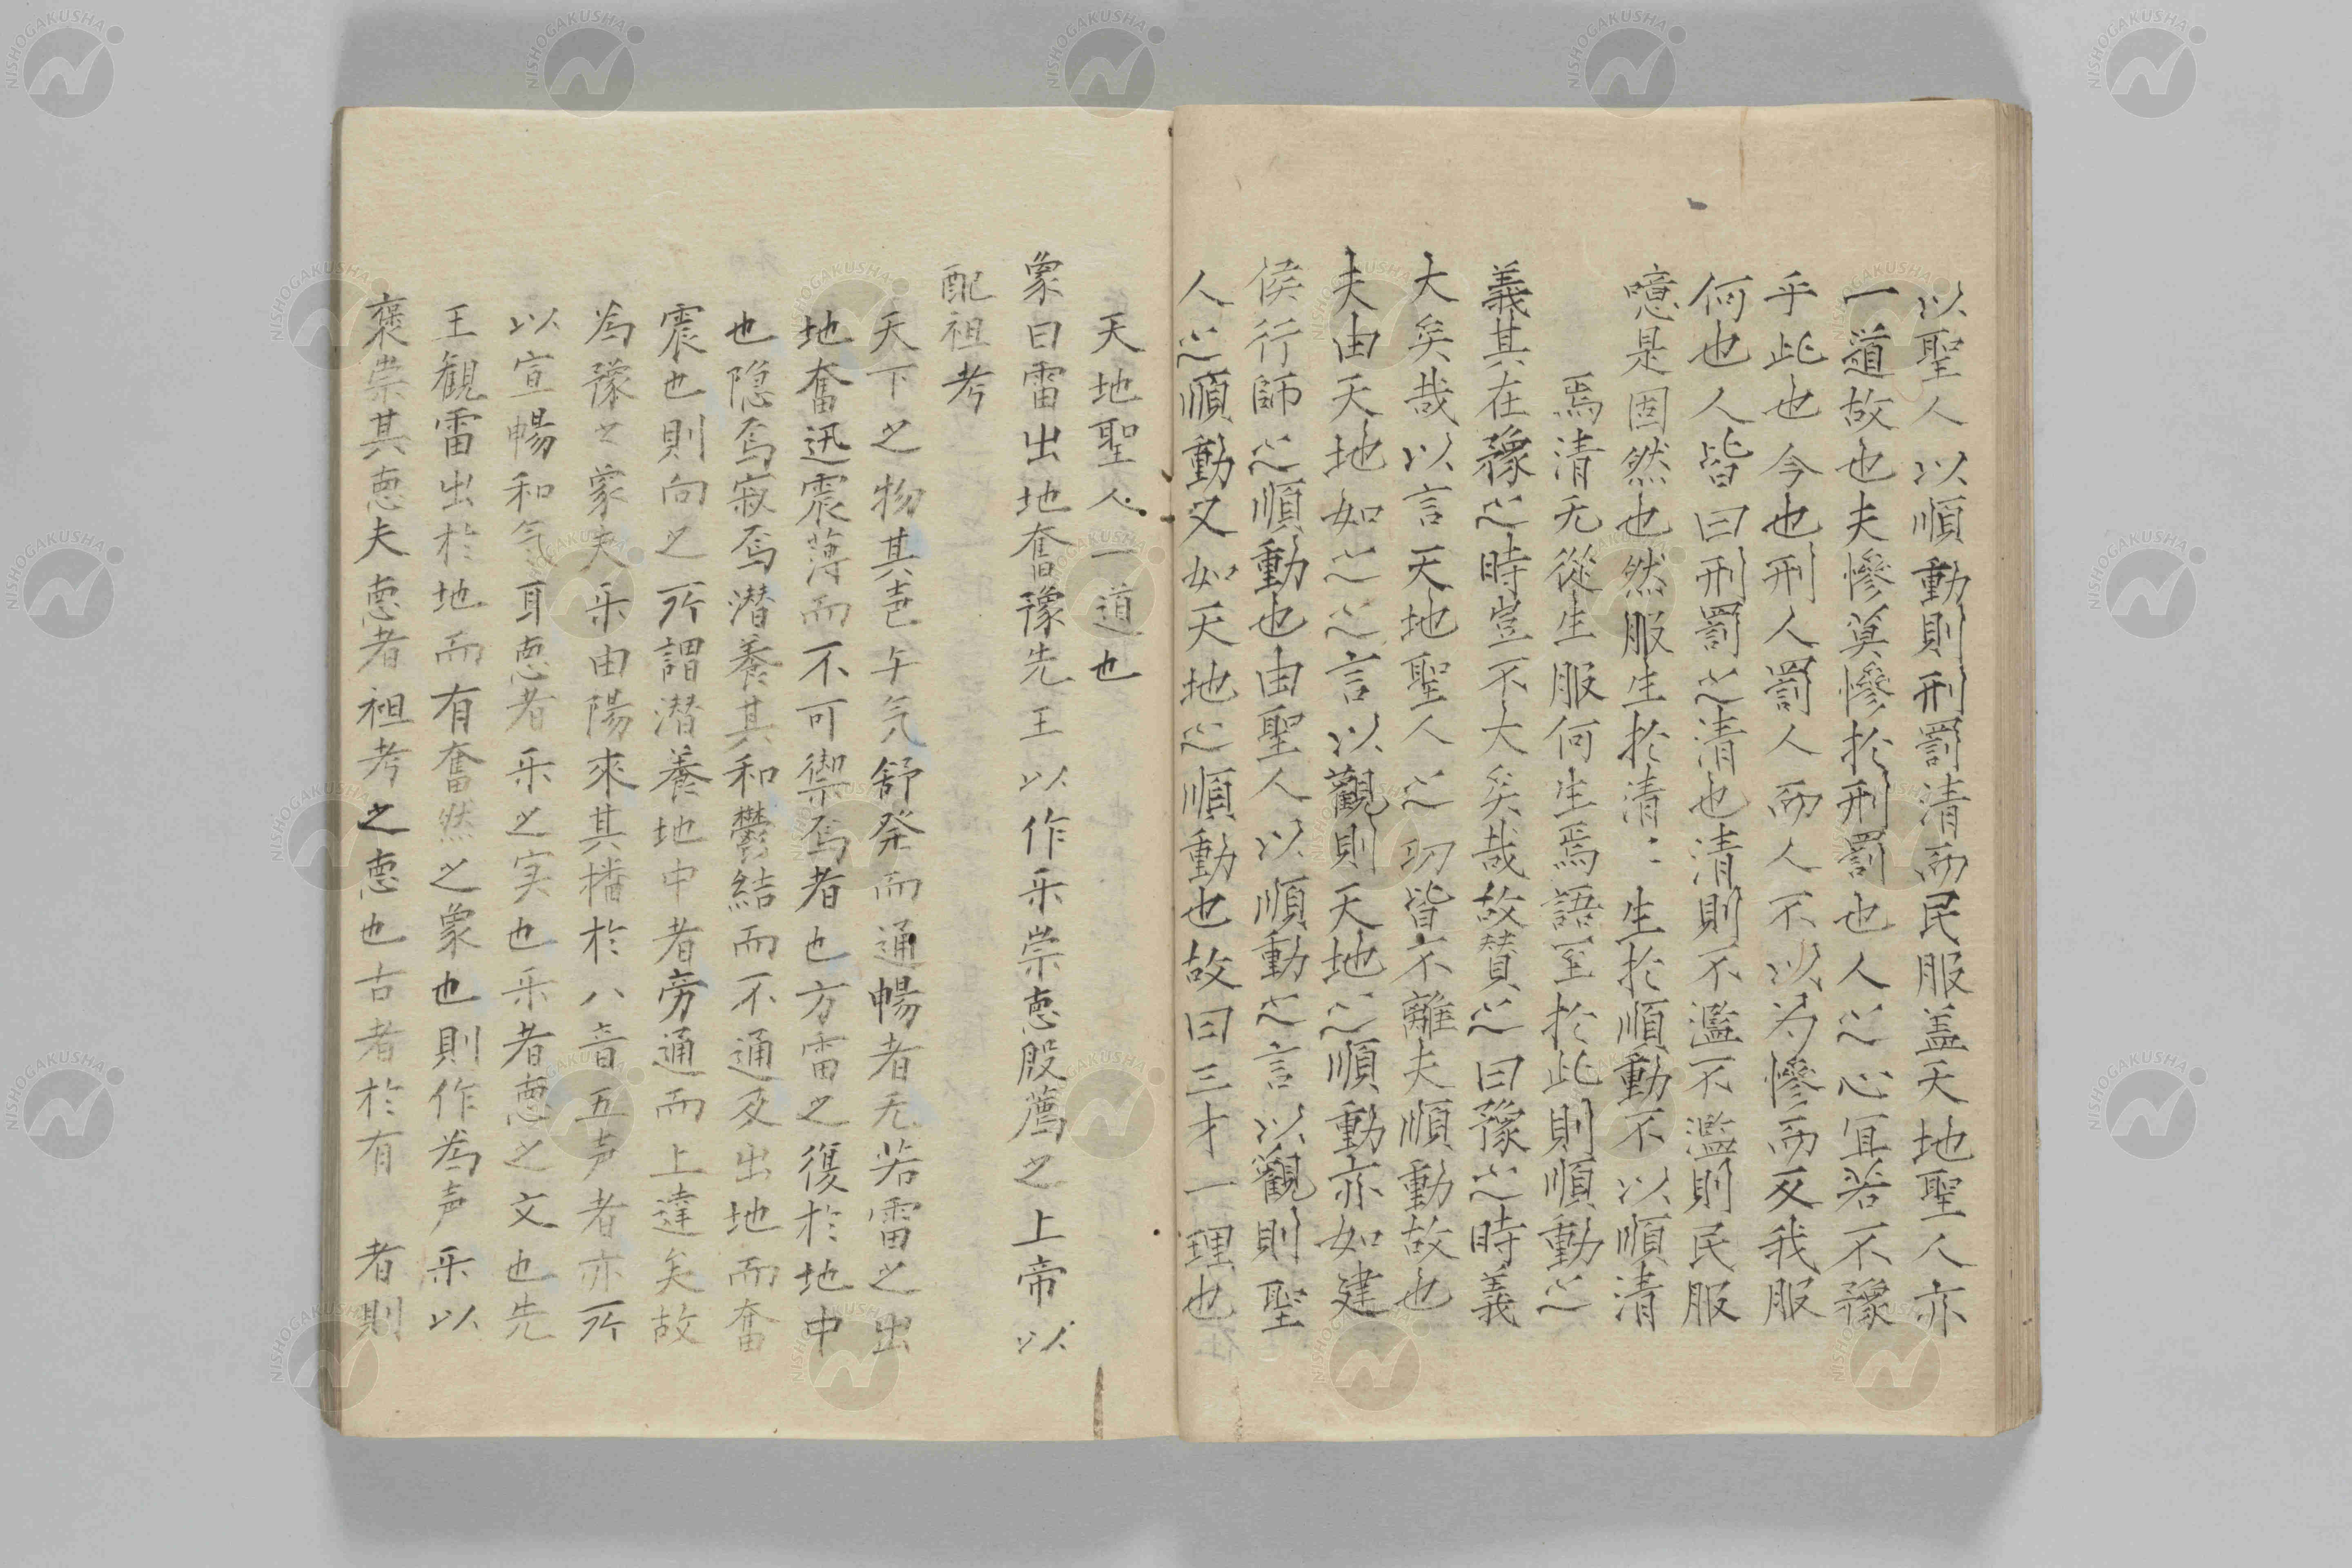 以聖人以順動則刑罰清而民服盖天地聖人亦
一道故也夫慘莫慘於刑罰也人之心冝若不豫
乎此也今也刑人罰人而人不以为慘而反我服
何也人皆曰刑罰之清也清則不濫不濫則民服
噫是固然也然服生於清〻生於順動不以順清
焉清无從生服何生焉語至於此則順動之
義其在豫之時豈不大矣哉故賛之曰豫之時義
大矣哉以言天地聖人之功皆不離夫順動故也
夫由天地如之之言以觀則天地之順動亦如建
侯行師之順動也由聖人以順動之言以觀則聖
人之順動又如天地之順動也故曰三才一理也
天地聖人一道也
象曰雷出地奮豫先王以作乐崇悳殷薦之上帝以
配祖考
天下之物其声与气舒發而通暢者无若雷之出
地奮迅震薄而不可禦焉者也方雷之復於地中
也隐焉寂焉潜養其和鬱結而不通及出地而奮
震也則向之所謂潜養地中者旁通而上達矣故
為豫之象夫乐由陽來其播於八音五声者亦所
以宣暢和气耳悳者乐之实也乐者悳之文也先
王観雷出於地而有奮然之象也則作為声乐以
褒崇其悳夫悳者祖考之悳也古者於有 者則
NISHOGAKUSHA